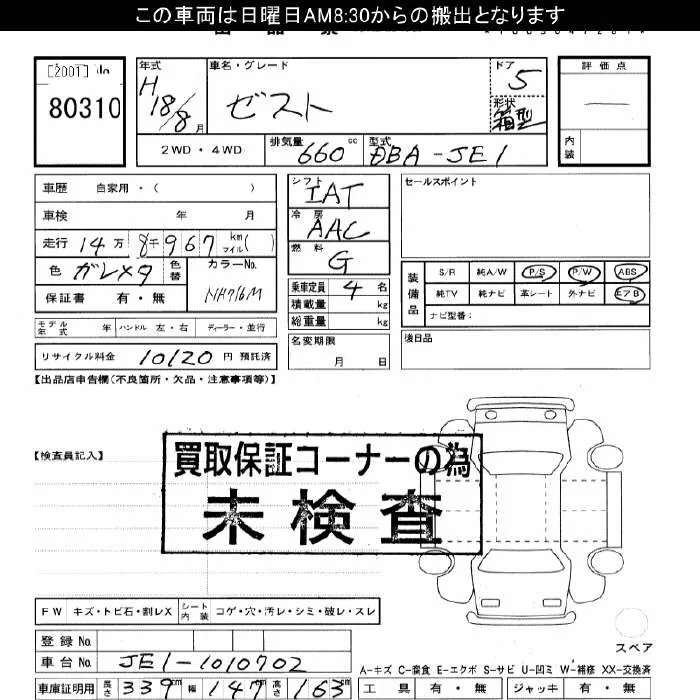 この車両は日曜日AM8:30からの搬出となります
[2001] No
80310
年式
H18/8月
車名・グレード
ゼスト
ドア
5
形状
箱型
評価点
内装
2WD・4WD
排気量 660 cc
型式 DBA-JE1
車歴 自家用・( )
車検 年 月
走行 14万8千967 km マイル ( )
色 ガンメタ 色替
カラーNo. NH716M
保証書 有・無
シフト IAT
冷房 AAC
燃料 G
乗車定員 4 名
積載量 kg
総重量 kg
セールスポイント
装備品
S/R 純A/W P/S P/W ABS
純TV 純ナビ 革シート 外ナビ エアB
ナビ型番:
モデル年式 年 ハンドル 左・右 ディーラー・並行
名変期限
月 日
後日品
リサイクル料金 10120 円 預託済
【出品店申告欄(不良箇所・欠品・注意事項等)】
【検査員記入】
買取保証コーナーの為
未検査
FW キズ・トビ石・割レX シート内装 コゲ・穴・汚レ・シミ・破レ・スレ
スペア
登録No.
車台No. JE1-1010702
A-キズ C-腐食 E-エクボ S-サビ U-凹ミ W-補修 XX-交換済
車庫証明用 長さ 339cm 幅 147cm 高さ 163cm
工具 有・無 ジャッキ 有・無